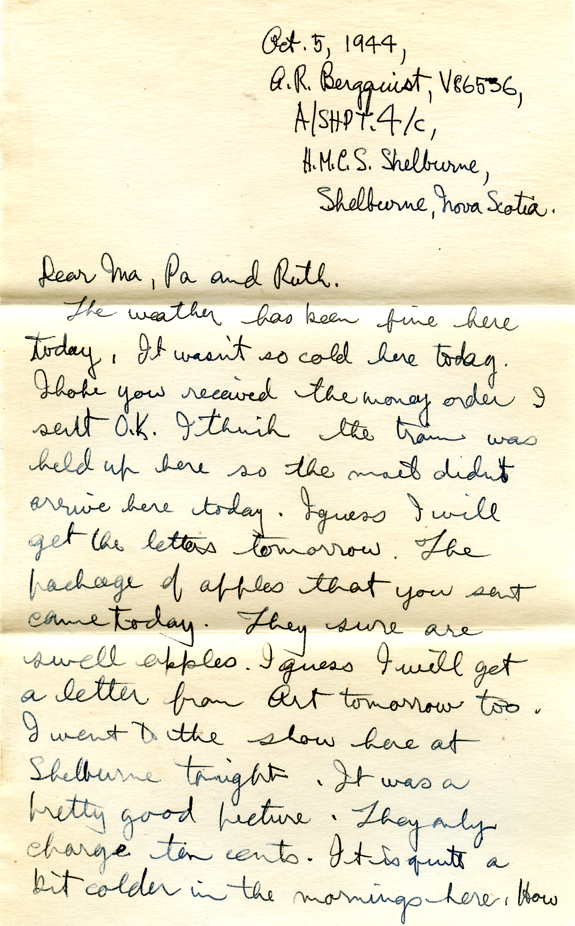 Oct. 5, 1944,
A.R. Bergquist, V86536,
A/SHPT. 4/c,
H.M.C.S. Shelburne,
Shelburne, Nova Scotia.
Dear Ma, Pa and Ruth.
The weather has been fine here
today. It wasn't so cold here today.
I hope you received the money order I
sent O.K. I think the train was
held up here so the mail didn't
arrive here today. I guess I will
get the letters tomorrow. The
package of apples that you sent
came today. They sure are
swell apples. I guess I will get
a letter from Art tomorrow too.
I went to the show here at
Shelburne tonight. It was a
pretty good picture. They only
charge ten cents. It is quite a
bit colder in the mornings here. How